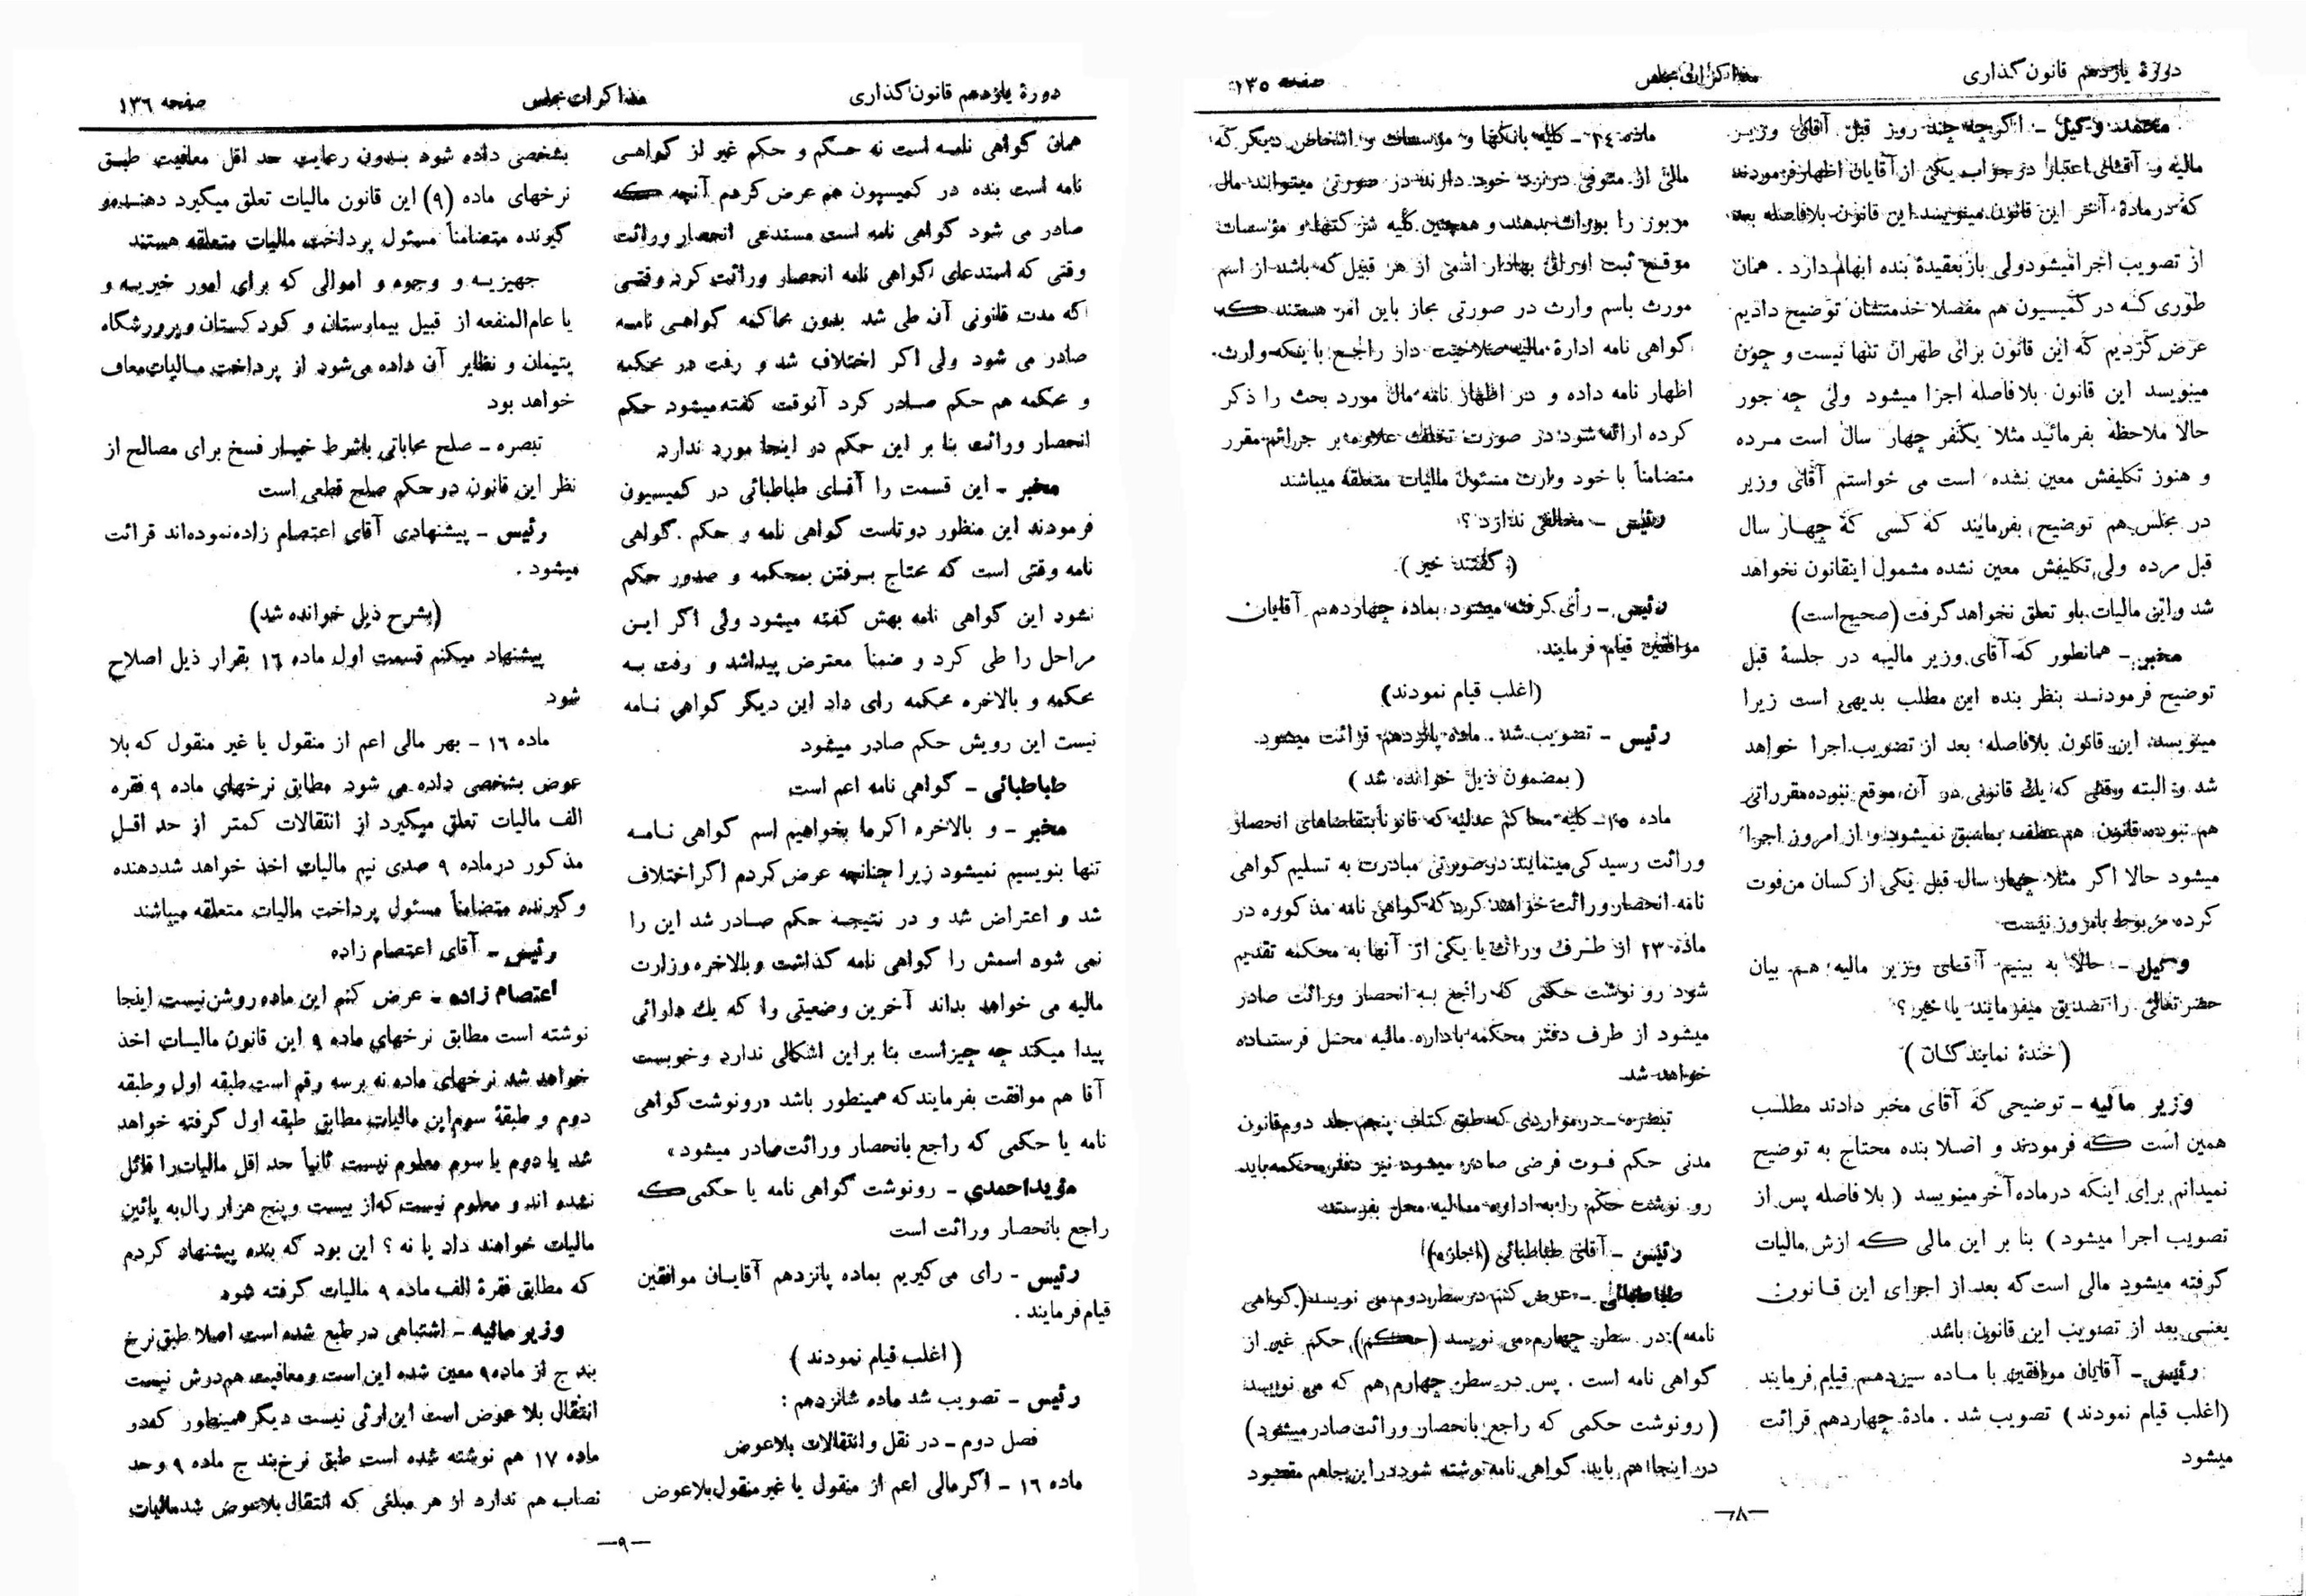 دورهٔ یازدهم قانون‌گذاری
مذاکرات مجلس
صفحه ۱۳۵
محمد وکیل - اگر چه چند روز قبل آقای وزیر
مالیه و آقای اعتبار در جواب یکی از آقایان اظهار فرمودند
که در مادهٔ آخر این قانون مینویسد این قانون بلافاصله بعد
از تصویب اجرا میشود ولی باز بعقیدهٔ بنده ابهام دارد . همان
طوری که در کمیسیون هم مفصلا خدمتشان توضیح دادیم
عرض کردیم که این قانون برای طهران تنها نیست و چون
مینویسد این قانون بلافاصله اجرا میشود ولی چه جور
حالا ملاحظه بفرمائید مثلا یکنفر چهار سال است مرده
و هنوز تکلیفش معین نشده است می خواستم آقای وزیر
در مجلس هم توضیح بفرمایند که کسی که چهار سال
قبل مرده ولی تکلیفش معین نشده مشمول اینقانون نخواهد
شد و این مالیات باو تعلق نخواهد گرفت (صحیح است)
مخبر - همانطور که آقای وزیر مالیه در جلسهٔ قبل
توضیح فرمودند بنظر بنده این مطلب بدیهی است زیرا
مینویسد این قانون بلافاصله بعد از تصویب اجرا خواهد
شد و البته وقتی که یك قانونی در آن موقع نبوده مقرراتی
هم نبوده قانون هم عطف بماسبق نمیشود و از امروز اجرا
میشود حالا اگر مثلا چهار سال قبل یکی از کسان من فوت
کرده مربوط بامروز نیست
وکیل - حالا به بینیم آقای وزیر مالیه هم بیان
حضرتعالی را تصدیق میفرمایند یا خیر؟
(خندهٔ نمایندگان)
وزیر مالیه - توضیحی که آقای مخبر دادند مطلب
همین است که فرمودند و اصلا بنده محتاج به توضیح
نمیدانم برای اینکه در ماده آخر مینویسد (بلافاصله پس از
تصویب اجرا میشود) بنا بر این مالی که ازش مالیات
گرفته میشود مالی است که بعد از اجرای این قانون
یعنی بعد از تصویب این قانون باشد
رئیس - آقایان موافقین با ماده سیزدهم قیام فرمایند
(اغلب قیام نمودند) تصویب شد . مادهٔ چهاردهم قرائت
میشود
ماده ۱۴ - کلیه بانکها و مؤسسات و اشخاص دیگر که
مالی از متوفی در نزد خود دارند در صورتی میتوانند مال
مزبور را بوراث بدهند و همچنین کلیه شرکتها و مؤسسات
موقع ثبت اوراق بهادار اسمی از هر قبیل که باشد از اسم
مورث باسم وارث در صورتی مجاز باین امر هستند که
گواهی نامه ادارهٔ مالیه صلاحیت دار راجع باینکه وارث
اظهار نامه داده و در اظهار نامه مال مورد بحث را ذکر
کرده ارائه شود در صورت تخلف علاوه بر جرائم مقرر
متضامناً با خود وارث مسئول مالیات متعلقه میباشند
رئیس - مخالفی ندارد؟
(گفتند خیر)
رئیس - رأی گرفته میشود بماده چهاردهم آقایان
موافقین قیام فرمایند.
(اغلب قیام نمودند)
رئیس - تصویب شد. ماده پانزدهم قرائت میشود.
(بمضمون ذیل خوانده شد)
ماده ۱۵- کلیه محاکم عدلیه که قانوناً بتقاضاهای انحصار
وراثت رسیدگی مینمایند در صورتی مبادرت به تسلیم گواهی
نامه انحصار وراثت خواهند کرد که گواهی نامه مذکوره در
ماده ۱۳ از طرف وراث یا یکی از آنها به محکمه تقدیم
شود رو نوشت حکمی که راجع به انحصار وراثت صادر
میشود از طرف دفتر محکمه باداره مالیه محل فرستاده
خواهد شد
تبصره - در مواردی که طبق کتاب پنجم جلد دوم قانون
مدنی حکم فوت فرضی صادر میشود نیز دفتر محکمه باید
رو نوشت حکم را به اداره مالیه محل بفرستد
رئیس - آقای طباطبائی (اجازه)
طباطبائی - عرض کنم در سطر دوم می نویسد (گواهی
نامه) در سطر چهارم می نویسد (حکم) حکم غیر از
گواهی نامه است . پس در سطر چهارم هم که می نویسد
(رونوشت حکمی که راجع بانحصار وراثت صادر میشود)
در اینجا هم باید گواهی نامه نوشته شود در این جا هم مقصود
—۸—
دورهٔ یازدهم قانون‌گذاری
مذاکرات مجلس
صفحه ۱۳۶
همان گواهی نامه است نه حکم و حکم غیر از گواهی
نامه است بنده در کمیسیون هم عرض کردم آنچه که
صادر می شود گواهی نامه است مستدعی انحصار وراثت
وقتی که استدعای گواهی نامه انحصار وراثت کرد وقتی
که مدت قانونی آن طی شد بدون محاکمه گواهی نامه
صادر می شود ولی اگر اختلاف شد و رفت در محکمه
و محکمه هم حکم صادر کرد آنوقت گفته میشود حکم
انحصار وراثت بنا بر این حکم در اینجا مورد ندارد
مخبر - این قسمت را آقای طباطبائی در کمیسیون
فرمودند این منظور دو تاست گواهی نامه و حکم . گواهی
نامه وقتی است که محتاج برفتن بمحکمه و صدور حکم
نشود این گواهی نامه بهش گفته میشود ولی اگر این
مراحل را طی کرد و ضمناً معترض پیدا شد و رفت به
محکمه و بالاخره محکمه رای داد این دیگر گواهی نامه
نیست این رویش حکم صادر میشود
طباطبائی - گواهی نامه اعم است
مخبر - و بالاخره اگر ما بخواهیم اسم گواهی نامه
تنها بنویسیم نمیشود زیرا چنانچه عرض کردم اگر اختلاف
شد و اعتراض شد و در نتیجه حکم صادر شد این را
نمی شود اسمش را گواهی نامه گذاشت و بالاخره وزارت
مالیه می خواهد بداند آخرین وضعیتی را که یك دارائی
پیدا میکند چه چیز است بنا بر این اشکالی ندارد و خوبست
آقا هم موافقت بفرمایند که همینطور باشد «رونوشت گواهی
نامه یا حکمی که راجع بانحصار وراثت صادر میشود»
مؤید احمدی - رونوشت گواهی نامه یا حکمی که
راجع بانحصار وراثت است
رئیس - رای می گیریم بماده پانزدهم آقایان موافقین
قیام فرمایند .
(اغلب قیام نمودند)
رئیس - تصویب شد ماده شانزدهم :
فصل دوم - در نقل و انتقالات بلاعوض
ماده ۱۶ - اگر مالی اعم از منقول یا غیر منقول بلاعوض
بشخصی داده شود بدون رعایت حد اقل معافیت طبق
نرخهای ماده (۹) این قانون مالیات تعلق میگیرد دهنده و
گیرنده متضامناً مسئول پرداخت مالیات متعلقه هستند
جهیزیه و وجوه و اموالی که برای امور خیریه و
یا عام‌المنفعه از قبیل بیمارستان و کودکستان و پرورشگاه
یتیمان و نظایر آن داده می‌شود از پرداخت مالیات معاف
خواهد بود
تبصره - صلح محاباتی با شرط خیار فسخ برای مصالح از
نظر این قانون در حکم صلح قطعی است
رئیس - پیشنهادی آقای اعتصام زاده نموده‌اند قرائت
میشود .
(بشرح ذیل خوانده شد)
پیشنهاد میکنم قسمت اول ماده ۱۶ بقرار ذیل اصلاح
شود
ماده ۱۶ - بهر مالی اعم از منقول یا غیر منقول که بلا
عوض بشخصی داده می شود مطابق نرخهای ماده ۹ فقره
الف مالیات تعلق میگیرد از انتقالات کمتر از حد اقل
مذکور در ماده ۹ صدی نیم مالیات اخذ خواهد شد دهنده
و گیرنده متضامناً مسئول پرداخت مالیات متعلقه میباشند
رئیس - آقای اعتصام زاده
اعتصام زاده - عرض کنم این ماده روشن نیست اینجا
نوشته است مطابق نرخهای ماده ۹ این قانون مالیات اخذ
خواهد شد نرخهای ماده نه بر سه رقم است طبقه اول و طبقه
دوم و طبقهٔ سوم این مالیات مطابق طبقه اول گرفته خواهد
شد یا دوم یا سوم معلوم نیست ثانیاً حد اقل مالیات را قائل
نشده اند و معلوم نیست که از بیست و پنج هزار ریال به پائین
مالیات خواهند داد یا نه ؟ این بود که بنده پیشنهاد کردم
که مطابق فقرهٔ الف ماده ۹ مالیات گرفته شود
وزیر مالیه - اشتباهی در طبع شده است اصلا طبق نرخ
بند ج از ماده ۹ معین شده این است و معافیت هم درش نیست
انتقال بلا عوض است این ارثی نیست دیگر همینطور که در
ماده ۱۷ هم نوشته شده است طبق نرخ بند ج ماده ۹ و حد
نصاب هم ندارد از هر مبلغی که انتقال بلاعوض شد مالیات
—۹—